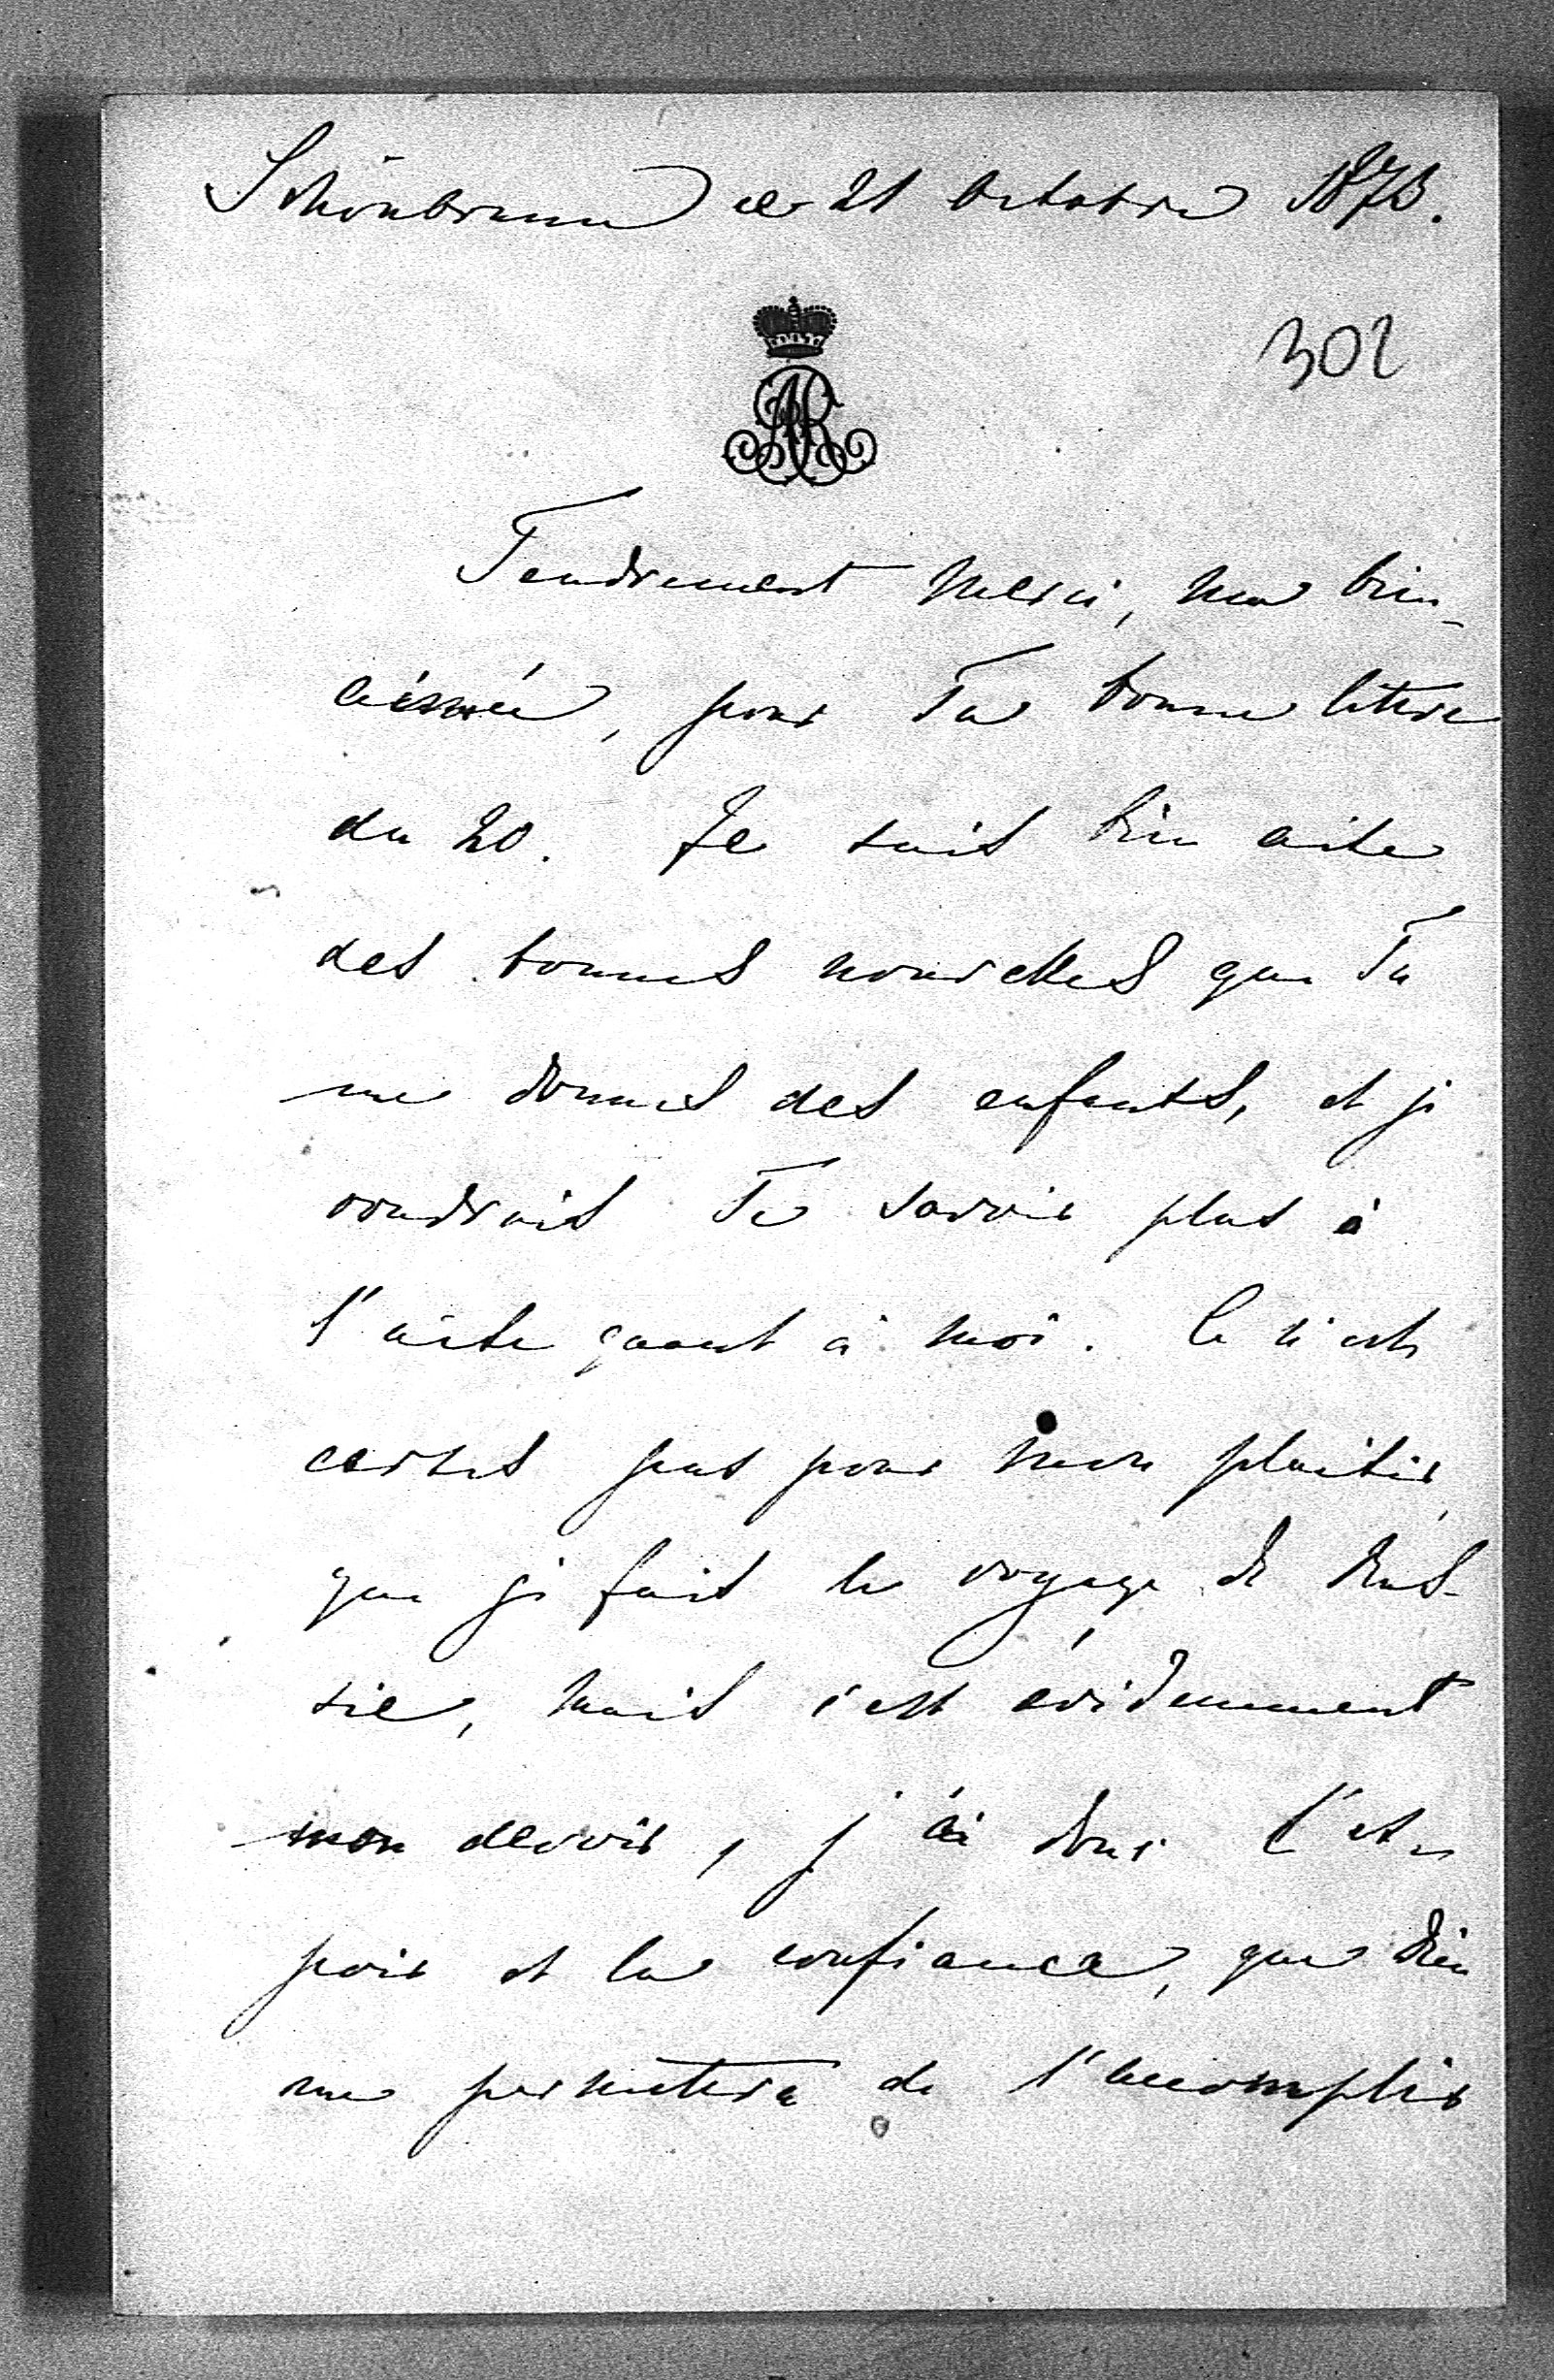 Schönbrunn ce 21 Octobre 1873.
302
Tendrement merci, ma bien-
aimée, pour Ta bonne lettre
du 20. Je suis bien aise
des bonnes nouvelles que Tu
me donnes des enfants, et je
voudrais Te savoir plus à
l'aise quant à moi. Ce n'est
certes pas pour mon plaisir,
que je fais le voyage de Rus-
sie, mais c'est évidemment
mon devoir, j'ai donc l'es-
poir et la confiance, que Dieu
me permettra de l'accomplir